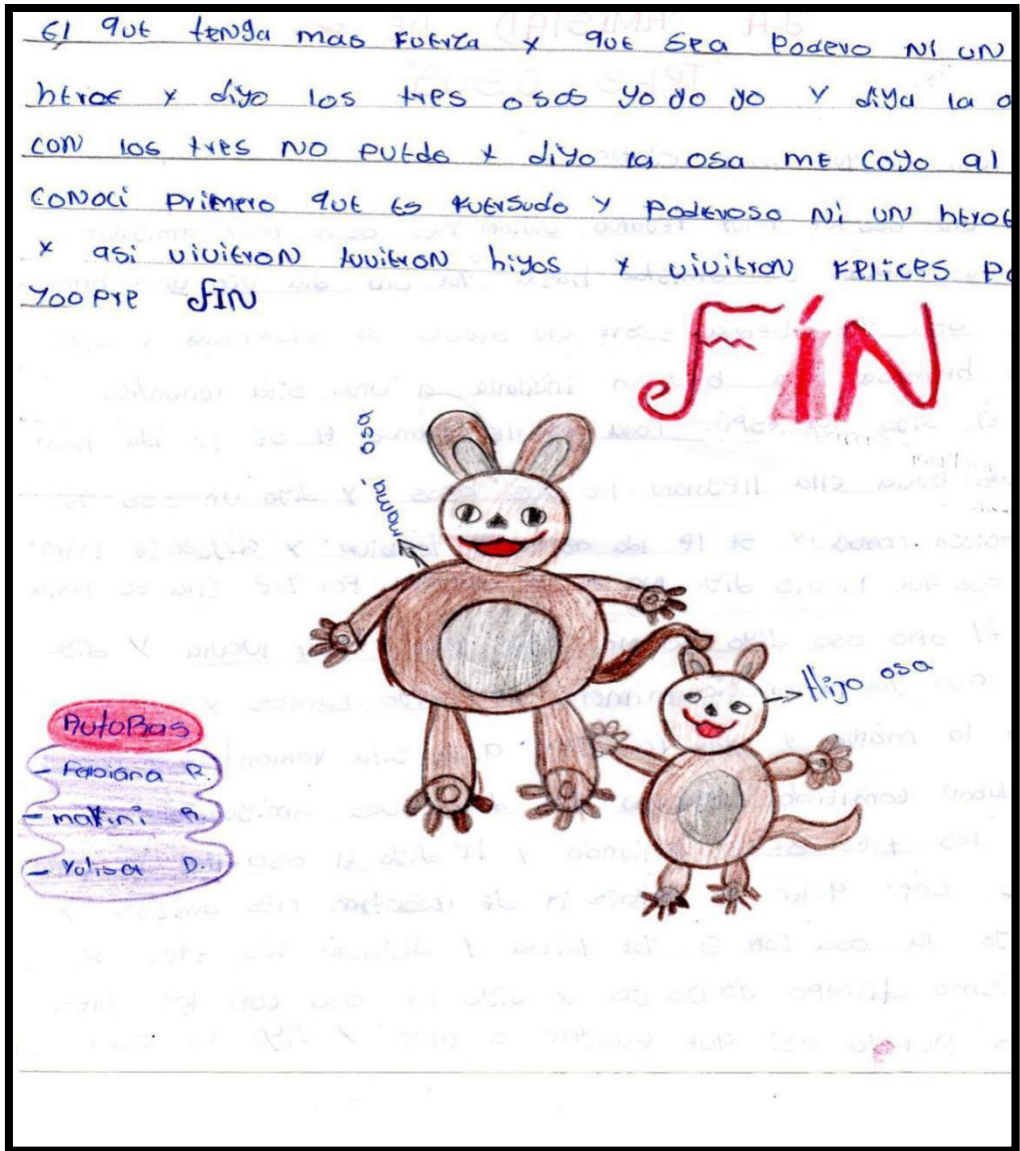 El que tenga mas Fuerza y que sea Podero Ni UN
heroe y diyo los tres osos yo yo yo y diya la o
con los tres NO puedo y diyo la osa me coyo al
conoci primero que es fuersudo y poderoso Ni UN heroe
y asi vivieron tuvieron hiyos y vivieron felices Po
yoo pre FIN
FIN
mama, osa
Hijo osa
AutoRas
- Fabiana R.
- MaKini R.
- Yulisa D.